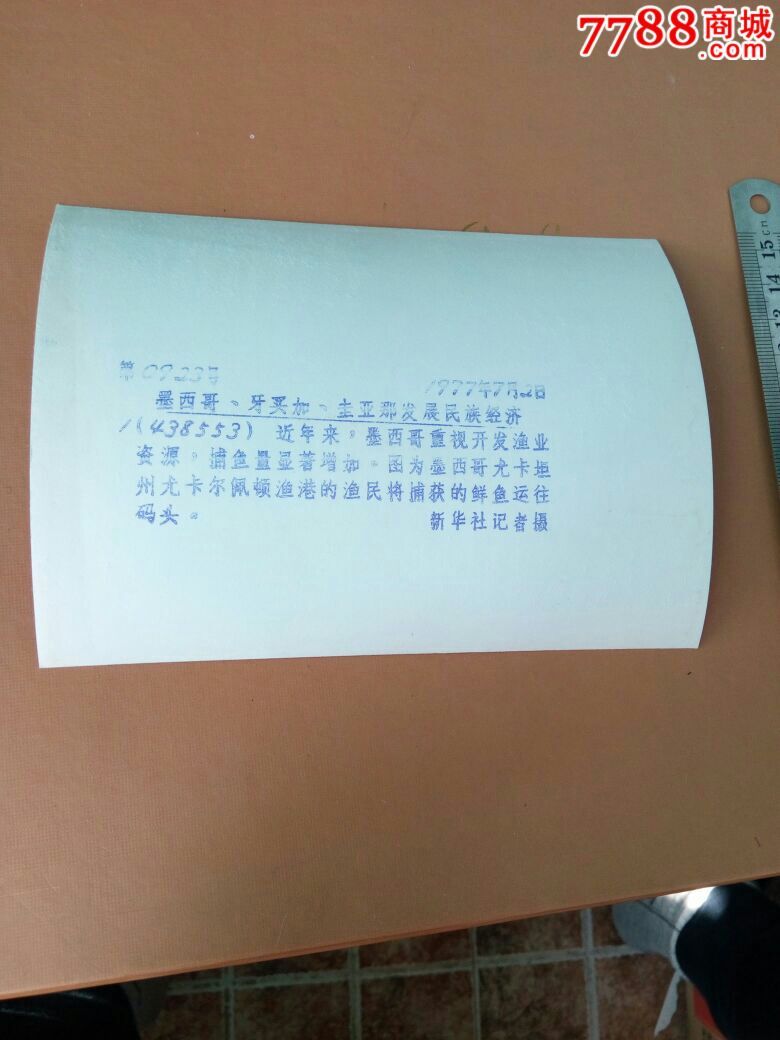 7788商城
.com
15cm
14
13
第0923号 1977年7月2日
墨西哥、牙买加、圭亚那发展民族经济
1(438553) 近年来，墨西哥重视开发渔业
资源，捕鱼量显著增加。图为墨西哥尤卡坦
州尤卡尔佩顿渔港的渔民将捕获的鲜鱼运往
码头。 新华社记者摄